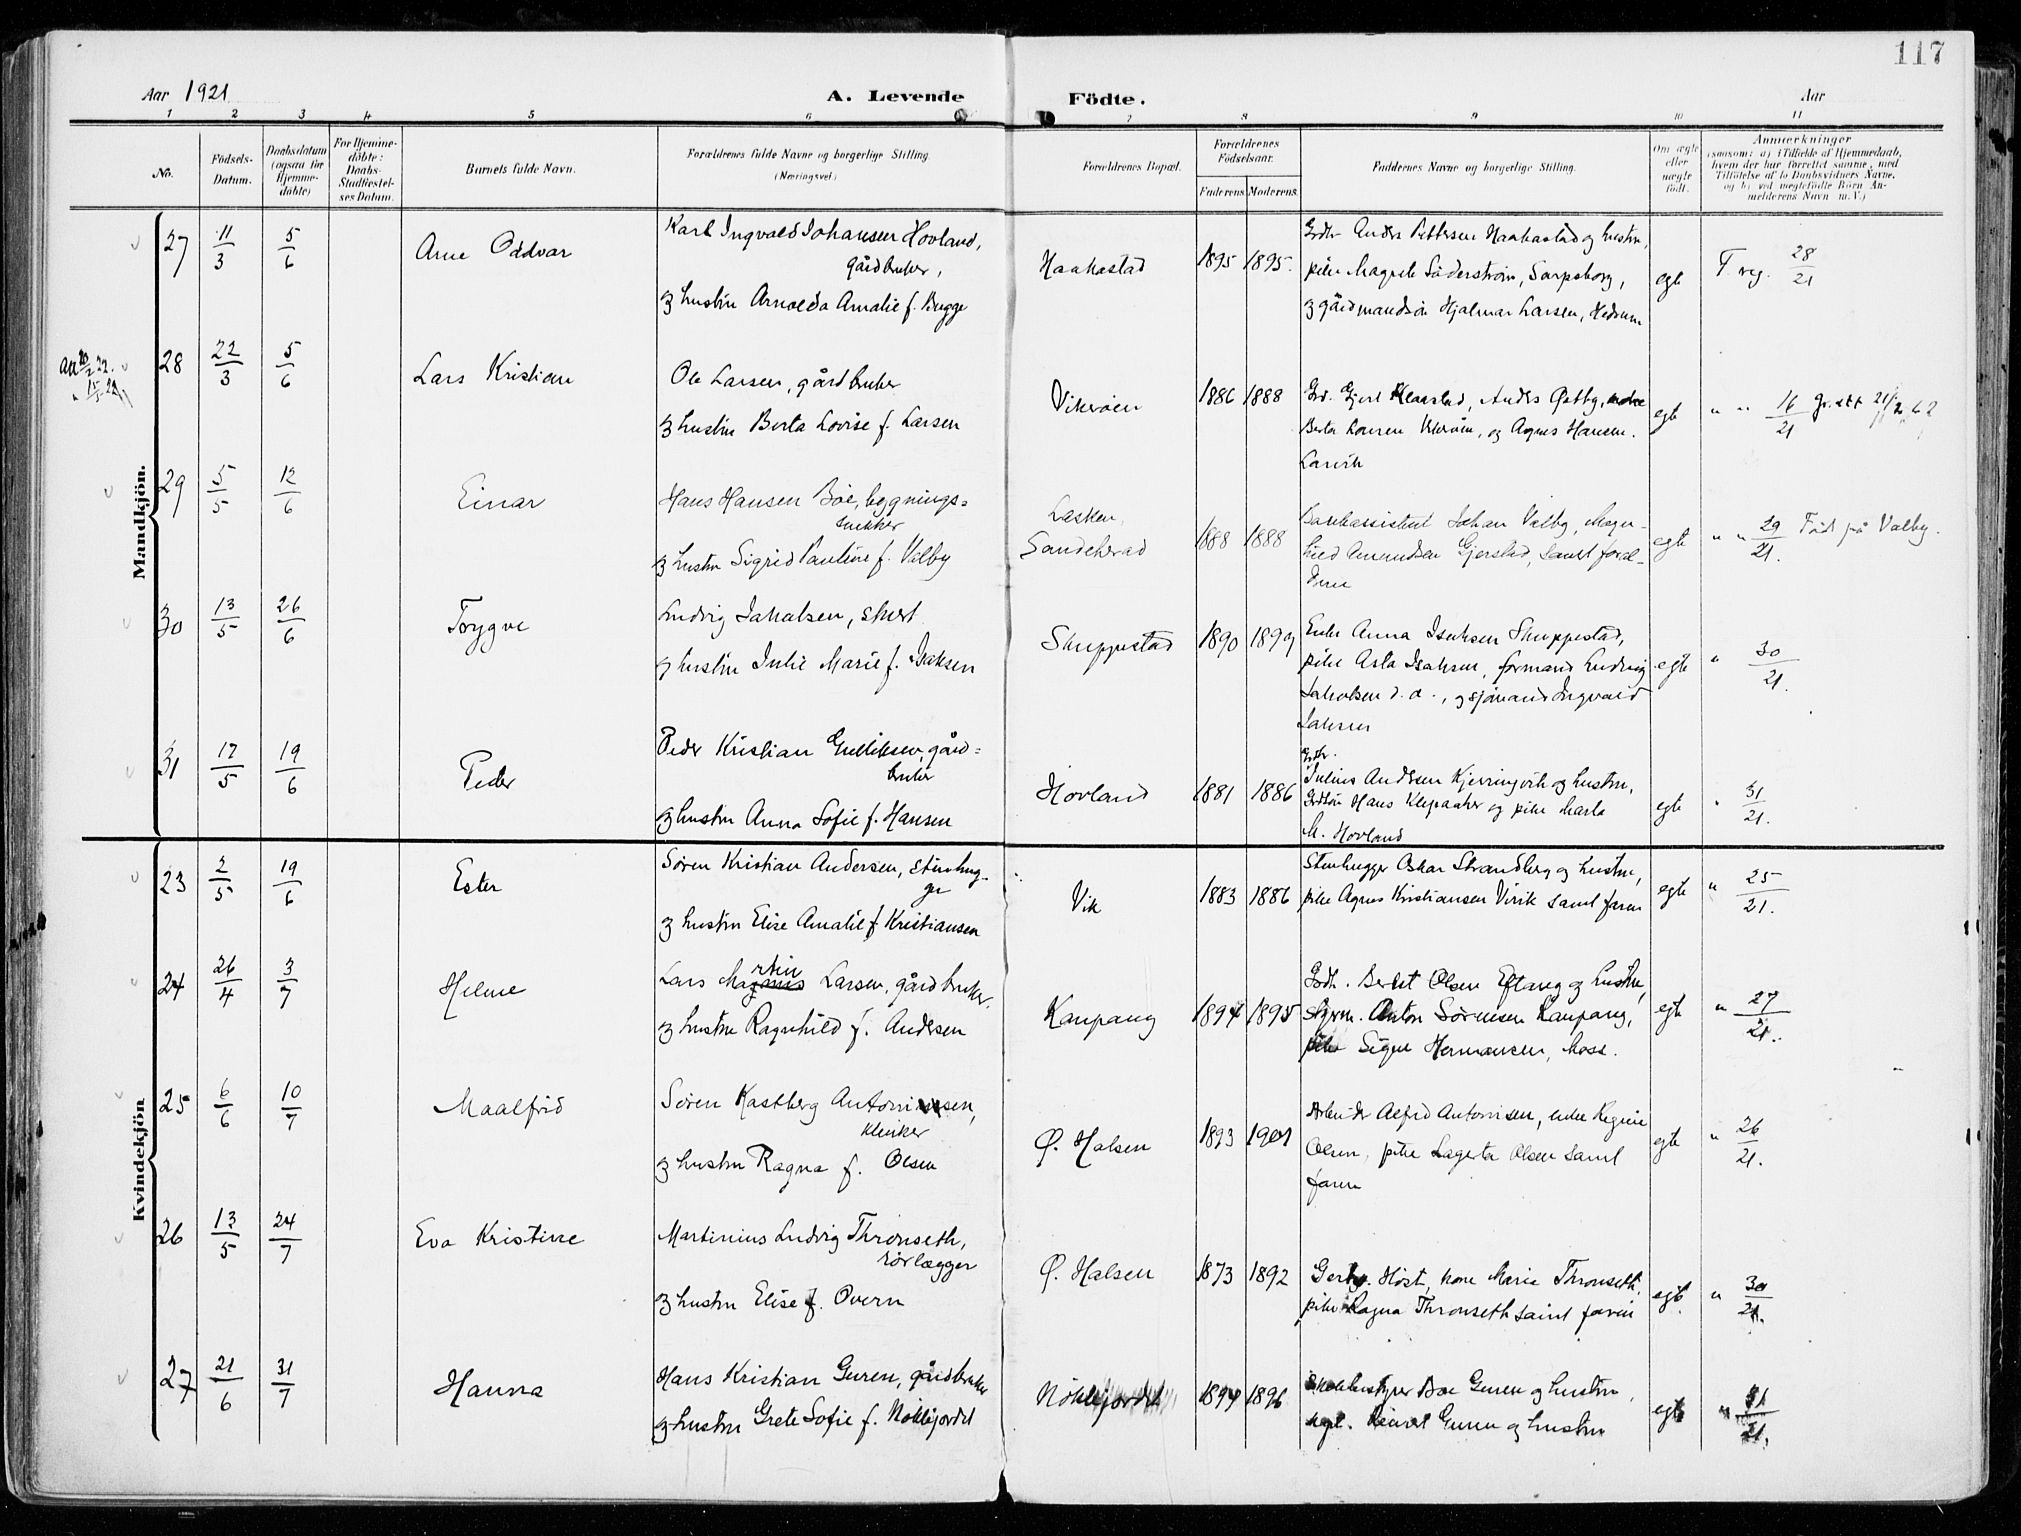 117
Aar 1921
A. Levende Födte.
Aar
1 2 3 4 5 6 7 8 9 10 11
No.
Födsels-
Datum.
Daabsdatum
(ogsaa for
Hjemme-
döbte)
For Hjemme-
döbte:
Daabs-
Stadfæstel-
ses Datum.
Barnets fulde Navn.
Forældrenes fulde Navne og borgerlige Stilling
(Næringsvei.)
Forældrenes Bopæl.
Forældrenes
Födselsaar.
Faderens. Moderens.
Faddernes Navne og borgerlige Stilling.
Om ægte
eller
uægte
födt.
Anmerkninger
(saasom: a) i Tilfælde af Hjemmedaab,
hvem der har forrettet samme, med
Tilföielse af to Daabsvidners Navne,
og b) ved uægtefödte Börn An-
melderens Navn m. V.)
Mandkjön.
27 11/3 5/6 Arne Oddvar
Karl Ingvald Johansen Hovland,
gårdbruker,
og hustru Arnolda Amalie f. Bugge
Haakastad 1895 1895.
Grdbr. Anders Pettersen Haakastad og hustru,
pike Magrete Söderström, Sarpsborg,
og gårdmandsön Hjalmar Larsen, Hedrum
egte
F. reg. 28/21
28 22/3 5/6 Lars Kristian
Ole Larsen, gårdbruker
og hustru Berta Lovise f. Larsen
Vikeröen 1886 1888
Klaastad, Anders Östby,
Berta Vikeröen, og Agnes Hansen.
Larvik
egte
" " 16/21
29 5/5 12/6 Einar
Hans Hansen Bøe, bygnings=
snekker
og hustru Sigrid Pauline f. Valby
Lasken,
Sandeherad 1888 1888
Bankassistent Johan Valby, Magn-
hild Amundsen Gjerstad, samt forel-
drene
egte
" " 29/21. Född på Valby.
30 13/5 26/6 Trygve
Ludvig Jakobsen,
og hustru Julie Marie f. Isaksen
Skuppestad 1890
Enke Anna Isaksen Skuppestad,
pike Asta Isaksen, formand Ludvig
Jakobsen d. a., og sjömand Ingvald
egte
" 30/21.
31 17/5 19/6 Peder
Peder Kristian Gulliksen, gård=
bruker
og hustru Anna Sofie f. Hansen
Hovland 1881 1886
Grdbr.
Julius Andersen Kjerringvik og hustru,
Grdsön Hans Klepaaker og pike Marta
M. Hovland
egte
" 31/21.
Kvindekjön
23 2/5 19/6 Ester
Sören Kristian Andersen, stenhug-
ger
og hustru Elise Amalie f. Kristiansen
Vik 1883 1886
Stenhugger Oskar Strandberg og hustru,
pike Agnes Kristiansen Virik samt faren
egte
" 25/21.
24 26/4 3/7 Helene
Lars Martin Larsen, gårdbruker.
og hustru Ragnhild f. Andersen
Kaupang 1894 1895
Grdb. Beret Olsen Eftang og hustru,
Styrm. Anton Sörensen Kaupang,
pike Signe Hermansen, Moss.
egte
" 27/21.
25 6/6 10/7 Maalfrid
Sören Kastberg Antonisen,
klinker
og hustru Ragna f. Olsen
Ø. Halsen 1893 1901
Arbeider Alfred Antonisen, enke Regine
Olsen, pike Lagerta Olsen samt
faren
egte
" 26/21.
26 13/5 24/7 Eva Kristine
Martinius Ludvig Thronseth,
rörlægger
og hustru Elise f. Overn
Ø. Halsen 1873 1892
Høst, kone Marie Thronseth,
pike Ragna Thronseth samt faren
egte
" 30/21.
27 21/6 31/7 Hanna
Hans Kristian Guren, gårdbruker
og hustru Grete Sofie f. Nöklegjordet
Nöklegjordet 1894 1896
Skolebestyrer Boe Guren og hustru,
Guren og hustru
egte
" 31/21.